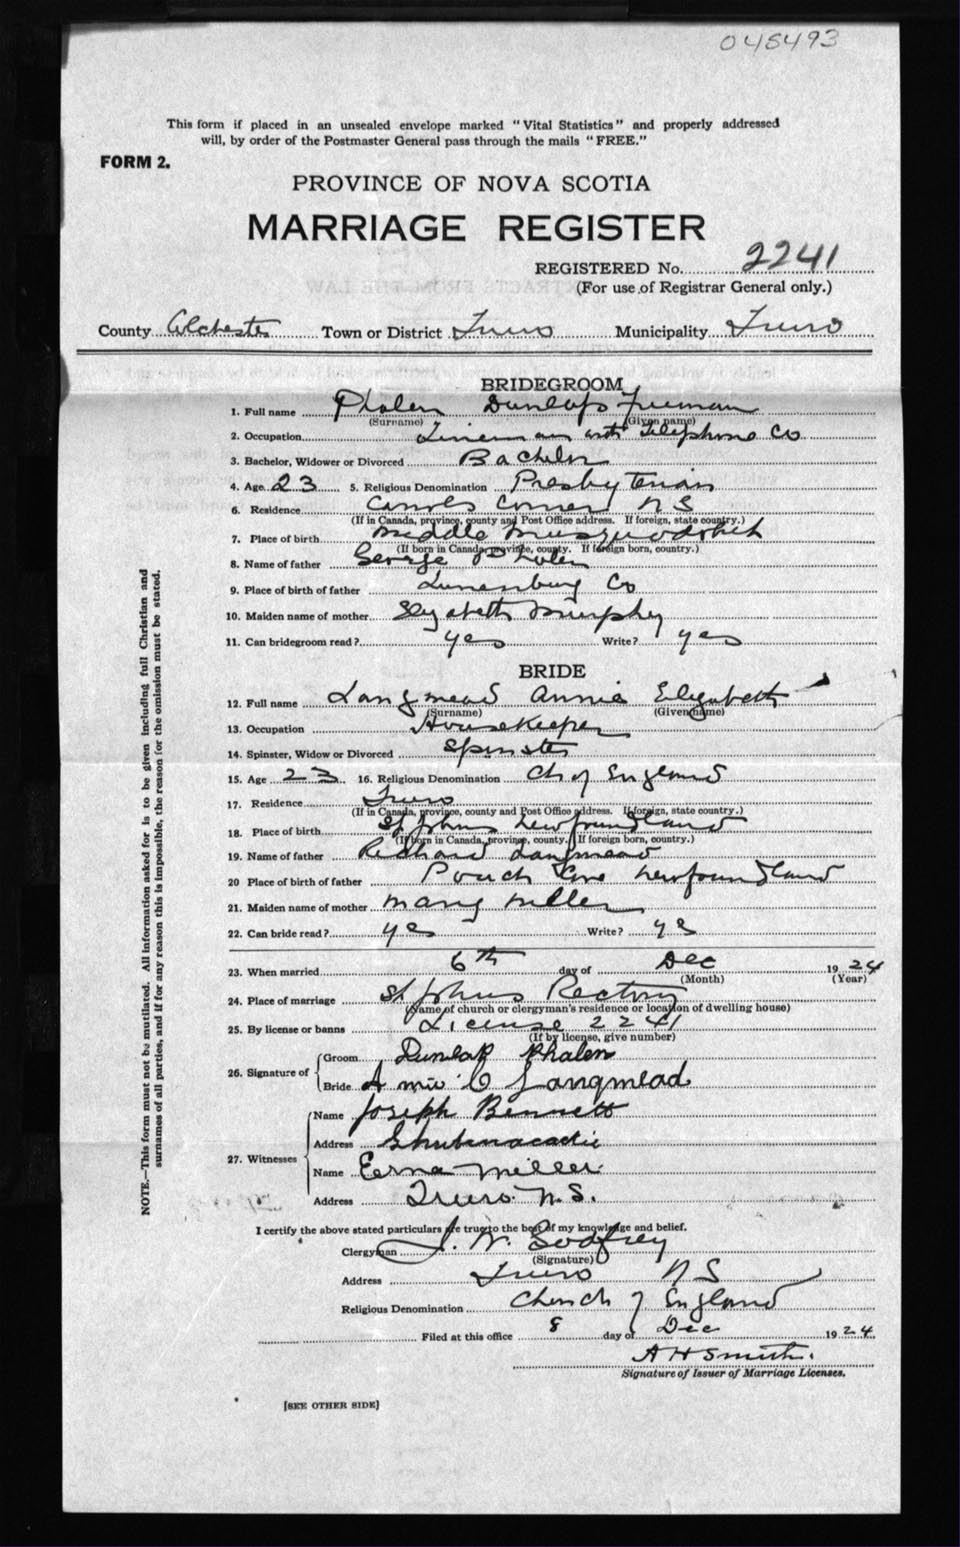 045493
This form if placed in an unsealed envelope marked "Vital Statistics" and properly addressed
will, by order of the Postmaster General pass through the mails "FREE."
FORM 2.
PROVINCE OF NOVA SCOTIA
MARRIAGE REGISTER
REGISTERED No. 2241
(For use of Registrar General only.)
County Colchester Town or District Truro Municipality Truro
BRIDEGROOM
1. Full name Phalen Dunlap Freeman
(Surname) (Given name)
2. Occupation Lineman with Telephone Co
3. Bachelor, Widower or Divorced Bachelor
4. Age 23 5. Religious Denomination Presbyterian
6. Residence Carrols Corner N S
(If in Canada, province, county and Post Office address. If foreign, state country.)
7. Place of birth Middle Musquodobit
(If born in Canada, province, county. If foreign born, country.)
8. Name of father George Phalen
9. Place of birth of father Lunenburg Co
10. Maiden name of mother Elizabeth Murphy
11. Can bridegroom read? yes Write? yes
BRIDE
12. Full name Langmead Annie Elizabeth
(Surname) (Given name)
13. Occupation Housekeeper
14. Spinster, Widow or Divorced Spinster
15. Age 23 16. Religious Denomination Ch of England
17. Residence Truro
(If in Canada, province, county and Post Office address. If foreign, state country.)
18. Place of birth St Johns Newfoundland
(If born in Canada, province, county. If foreign born, country.)
19. Name of father Richard Langmead
20 Place of birth of father Pouch Cove Newfoundland
21. Maiden name of mother Mary Miller
22. Can bride read? yes Write? yes
23. When married 6th day of Dec 1924
(Month) (Year)
24. Place of marriage St Johns Rectory
(Name of church or clergyman's residence or location of dwelling house)
25. By license or banns License 2241
(If by license, give number)
26. Signature of Groom Dunlap Phalen
Bride Annie E Langmead
27. Witnesses Name Joseph Bennett
Address Shubenacadie
Name Erna Miller
Address Truro N.S.
I certify the above stated particulars are true to the best of my knowledge and belief.
Clergyman J. W. Godfrey
(Signature)
Address Truro N S
Religious Denomination Church of England
Filed at this office 8 day of Dec 1924
A H Smith.
Signature of Issuer of Marriage Licenses.
[SEE OTHER SIDE]
NOTE.—This form must not be mutilated. All information asked for is to be given including full Christian and
surnames of all parties, and if for any reason this is impossible, the reason for the omission must be stated.